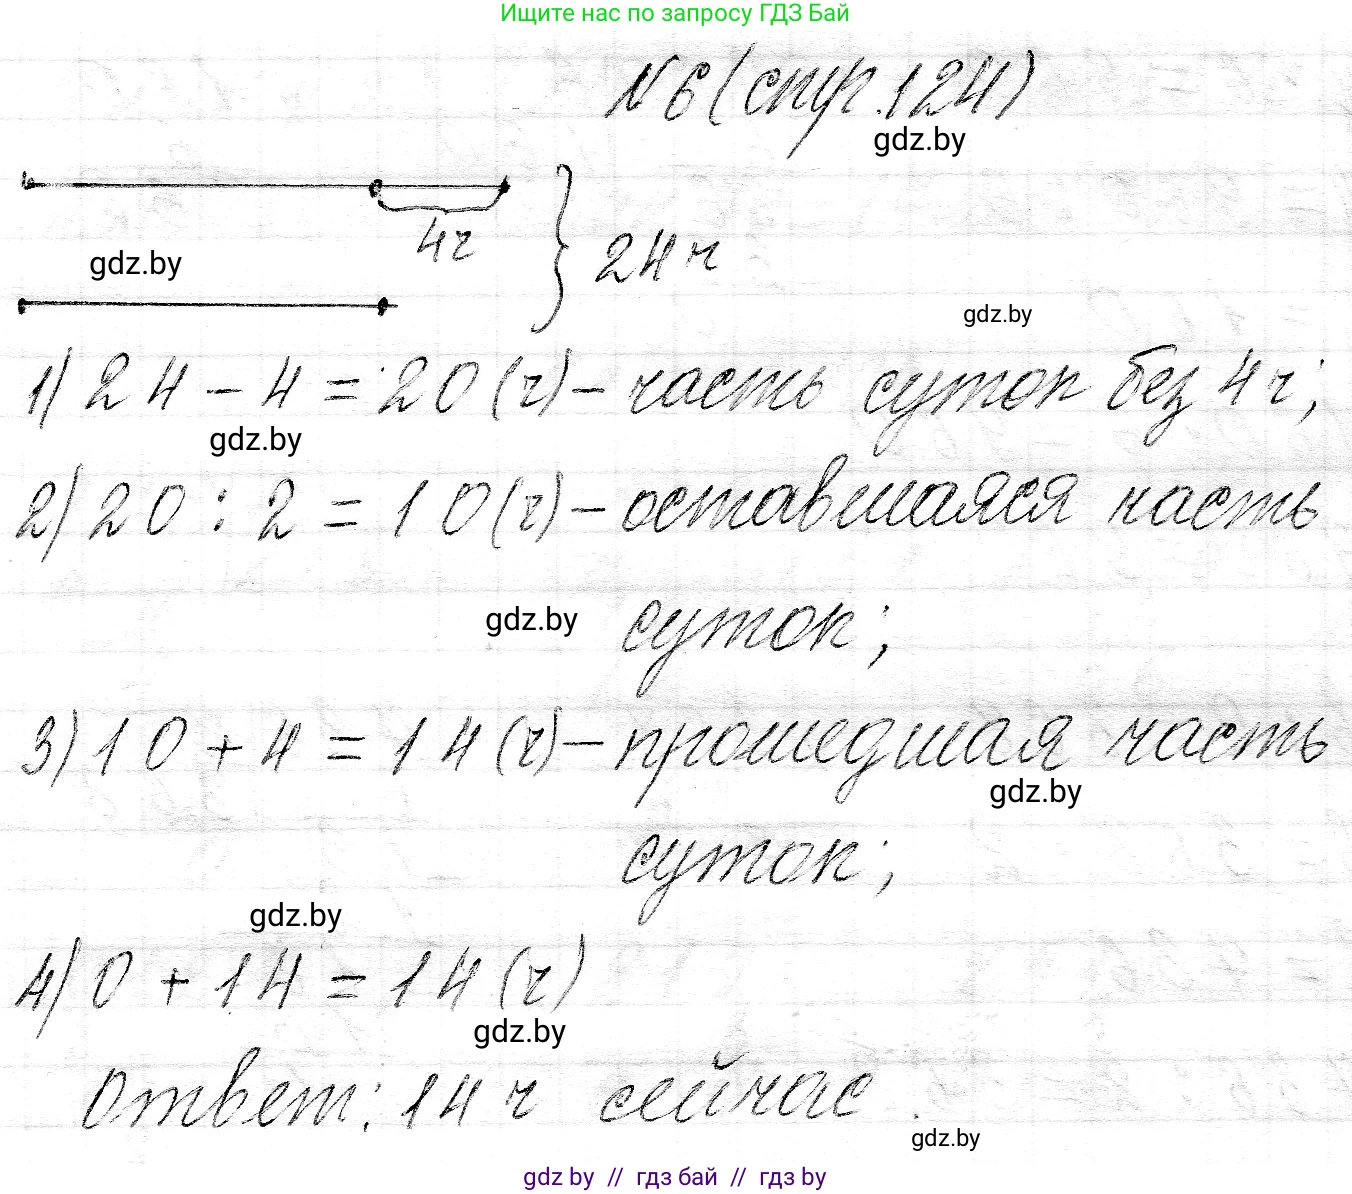 Ищите нас по запросу ГДЗ Бай
№6 (стр.124)
gdz.by
4ч
24ч
gdz.by
gdz.by
1) 24 - 4 = 20 (ч) - часть суток без 4ч;
gdz.by
2) 20 : 2 = 10 (ч) - оставшаяся часть
gdz.by
суток;
3) 10 + 4 = 14 (ч) - прошедшая часть
gdz.by
суток;
gdz.by
4) 0 + 14 = 14 (ч)
gdz.by
Ответ: 14 ч сейчас.
gdz.by
gdz by // гдз бай // гдз by